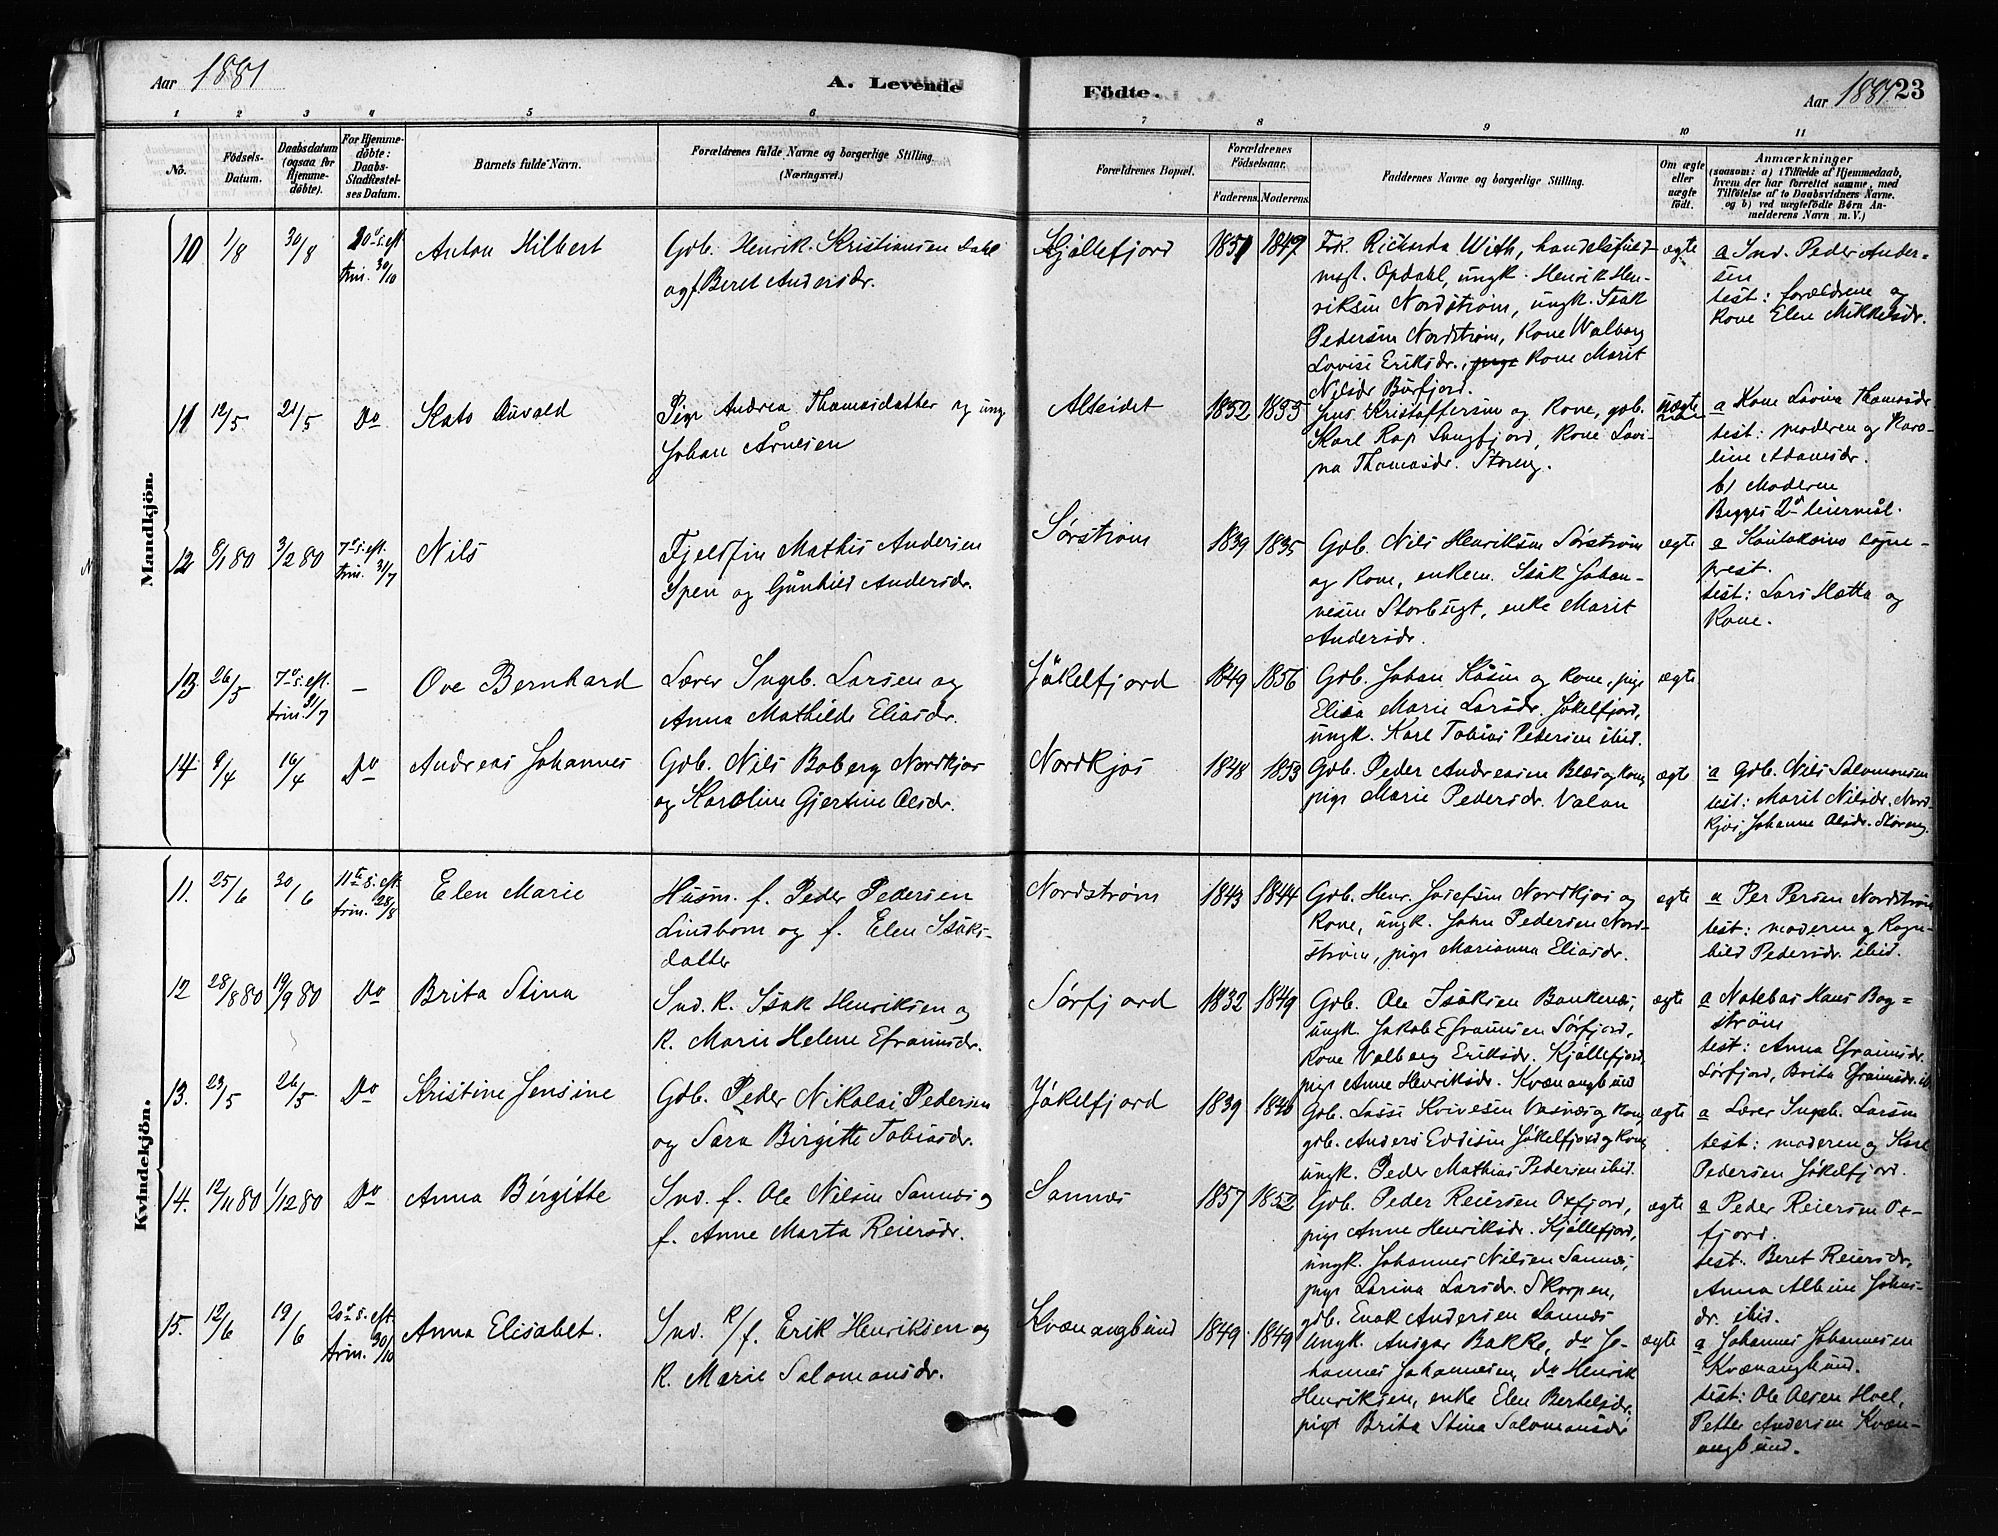 Aar 1881
A. Levende
Födte.
Aar 1881
23
1 2 3 4 5 6 7 8 9 10 11
No.
Födsels-Datum.
Daabsdatum (ogsaa for Hjemmedöbte).
For Hjemmedöbte: Daabs-Stadfæstelses Datum.
Barnets fulde Navn.
Forældrenes fulde Navne og borgerlige Stilling. (Næringsvei.)
Forældrenes Bopæl.
Forældrenes Födselsaar. Faderens. Moderens.
Faddernes Navne og borgerlige Stilling.
Om ægte eller uægte födt.
Anmærkninger (saasom: a) i Tilfælde af Hjemmedaab, hvem der har forrettet samme, med Tilföielse af to Daabsvidners Navne. og b) ved uægtefödte Börn Anmelderens Navn m. V.)
Mandkjön.
10 1/8 30/8 20de s. eft. trin. 30/10 Anton Hilbert
Gdb. Henrik Kristiansen Dahl
og f. Beret Andersdr.
Kjøllefjord 1851 1847
Frk. Richarda With, handelsfuld-
mgt. Opdahl, ungk. Henrik Hen-
riksen Nordstrøm, ungk. Isak
Pedersen Nordstrøm, Kone Walborg
Lovise Eriksdr., pige Kone Marit
Nilsdr Burfjord.
ægte
a Ind. Peder Ander-
sen
test: forældrene og
Kone Elen Mikkelsdr.
11 12/5 21/5 Do Kato Osvald
Pige Andrea Thomasdatter og ung
Johan Arnesen
Alteidet 1852 1855
Jens Kristoffersen og Kone, gdb.
Karl Rap Langfjord, Kone Lovi-
na Thomasdr. Storeng.
uægte
a Kone Lovina Thomasdr
test: moderen og Karo-
line Adamsdr.
b) Moderen
Begges 2det leiermål.
12 8/1 80 3/2 80 7de s. eft. trin. 31/7 Nils
Fjeldfin Mathis Andersen
Spen og Gunhild Andersdr.
Sørstrøm 1839 1835
Gdb. Nils Henriksen Sørstrøm
og Kone, enkem. Isak Johan-
nesen Storbugt, enke Marit
Andersdr.
ægte
a Kautokeino sogne-
prest.
test: Lars Hætta og
Kone.
13 26/5 7de s. eft. trin. 31/7 — Ove Bernhard
Lærer Ingeb. Larsen og
Anna Mathilde Eliasdr.
Jökelfjord 1849 1856
Gdb. Johan Kåsen og Kone, pige
Elisa Marie Larsdr. Jökelfjord,
ungk. Karl Tobias Pedersen ibid.
ægte
14 8/4 16/4 Do Andreas Johannes
Gdb. Nils Boberg Nordkjos
og Karoline Gjertine Olsdr.
Nordkjos 1848 1853
Gdb. Peder Andreasen Blæs og Kone,
pige Marie Pedersdr. Valan
ægte
a Gdb. Nils Salomonsen
test: Marit Nilsdr. Nord-
kjos, Johanne Olsdr. Storeng.
Kvindekjön.
11. 25/6 30/6 11te s. eft. trin. 28/8 Elen Marie
Husm. f. Peder Pedersen
Lindbom og f. Elen Isaks-
datter
Nordstrøm 1843 1844
Gdb. Henr. Josefsen Nordkjos og
Kone, ungk. John Pedersen Nord-
strøm, pige Marianna Eliasdr.
ægte
a Per Persen Nordstrøm
test: moderen og Ragn-
hild Pedersdr. ibid.
12 28/8 80 19/9 80 Do Brita Stina
Ind. K. Isak Henriksen og
K. Marie Helene Efraimsdr.
Sørfjord 1832 1849
Gdb. Ole Isaksen Bankenæs,
ungk. Jakob Efraimsen Sørfjord,
Kone Valborg Eriksdr. Kjøllefjord,
pige Anne Henriksdr. Kvænangbund
ægte
a Notebas Hans Bog-
strøm
test: Anna Efraimsdr.
Sørfjord, Brita Efraimsdr. ib
13. 23/5 26/5 Do Kristine Jensine
Gdb. Peder Nikolai Pedersen
og Sara Birgitte Tobiasdr.
Jökelfjord 1839 1840
Gdb. Lasse Kvivesen Vasnæs og Kone,
gdb. Anders Eddisen Jökelfjord og Kone
ungk. Peder Mathias Pedersen ibid.
ægte
a Lærer Ingeb. Larsen
test: moderen og Karl
Pedersen Jökelfjord.
14. 12/11 80 1/12 80 Do Anna Birgitte
Ind. f. Ole Nilsen Sannæs og
f. Anne Marta Reiersdr.
Sannæs 1857 1852
Gdb. Peder Reiersen Oxfjord,
pige Anne Henriksdr. Kjøllefjord,
ungk. Johannes Nilsen Sannæs,
pige Larina Larsdr. Skorpen,
gdb. Enok Andersen Sannæs
ægte
a Peder Reiersen Ox-
fjord.
test. Beret Reiersdr,
Anna Albine Johns-
dr. ibid.
15. 12/6 19/6 20de s. eft. trin. 30/10 Anna Elisabet.
Ind. K/f. Erik Henriksen og
K. Marie Salomonsdr.
Kvænangbund 1849. 1849
Ungk. Ansgar Bakke, do Jo-
hannes Johannesen, do Henrik
Henriksen, enke Elen Bertelsdr.
pige Brita Stina Salomonsdr
ægte
a Johannes Johannesen
Kvænangbund.
test: Ole Olsen Hoel,
Petter Andersen Kvæn-
angbund.